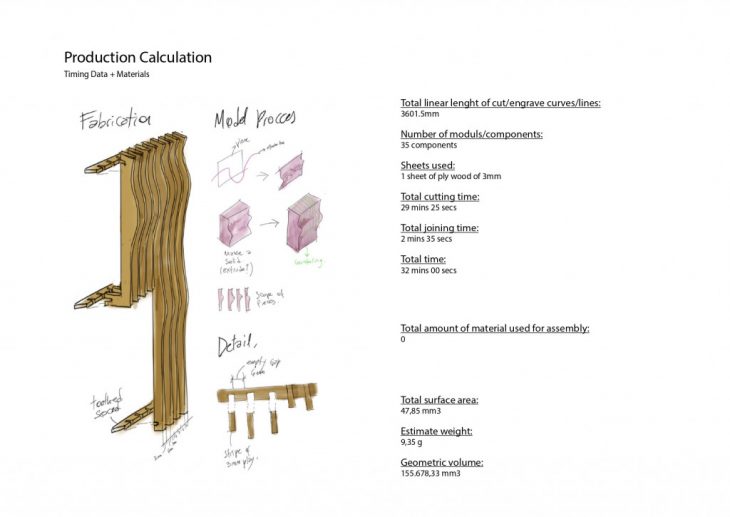 Production Calculation
Timing Data + Materials
Fabrication
Model Procces
Total linear lenght of cut/engrave curves/lines:
3601.5mm
Number of moduls/components:
35 components
Sheets used:
1 sheet of ply wood of 3mm
Total cutting time:
29 mins 25 secs
Total joining time:
2 mins 35 secs
Total time:
32 mins 00 secs
solid
(extrude?)
Detail,
empty Gap
Shape of
3mm play.
Total amount of material used for assembly:
0
Total surface area:
47,85 mm3
Estimate weight:
9,35 g
Geometric volume:
155.678,33 mm3